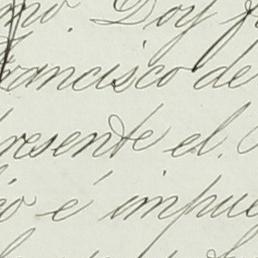 mo. Doy f
rancisco de
resente el.
co é impue